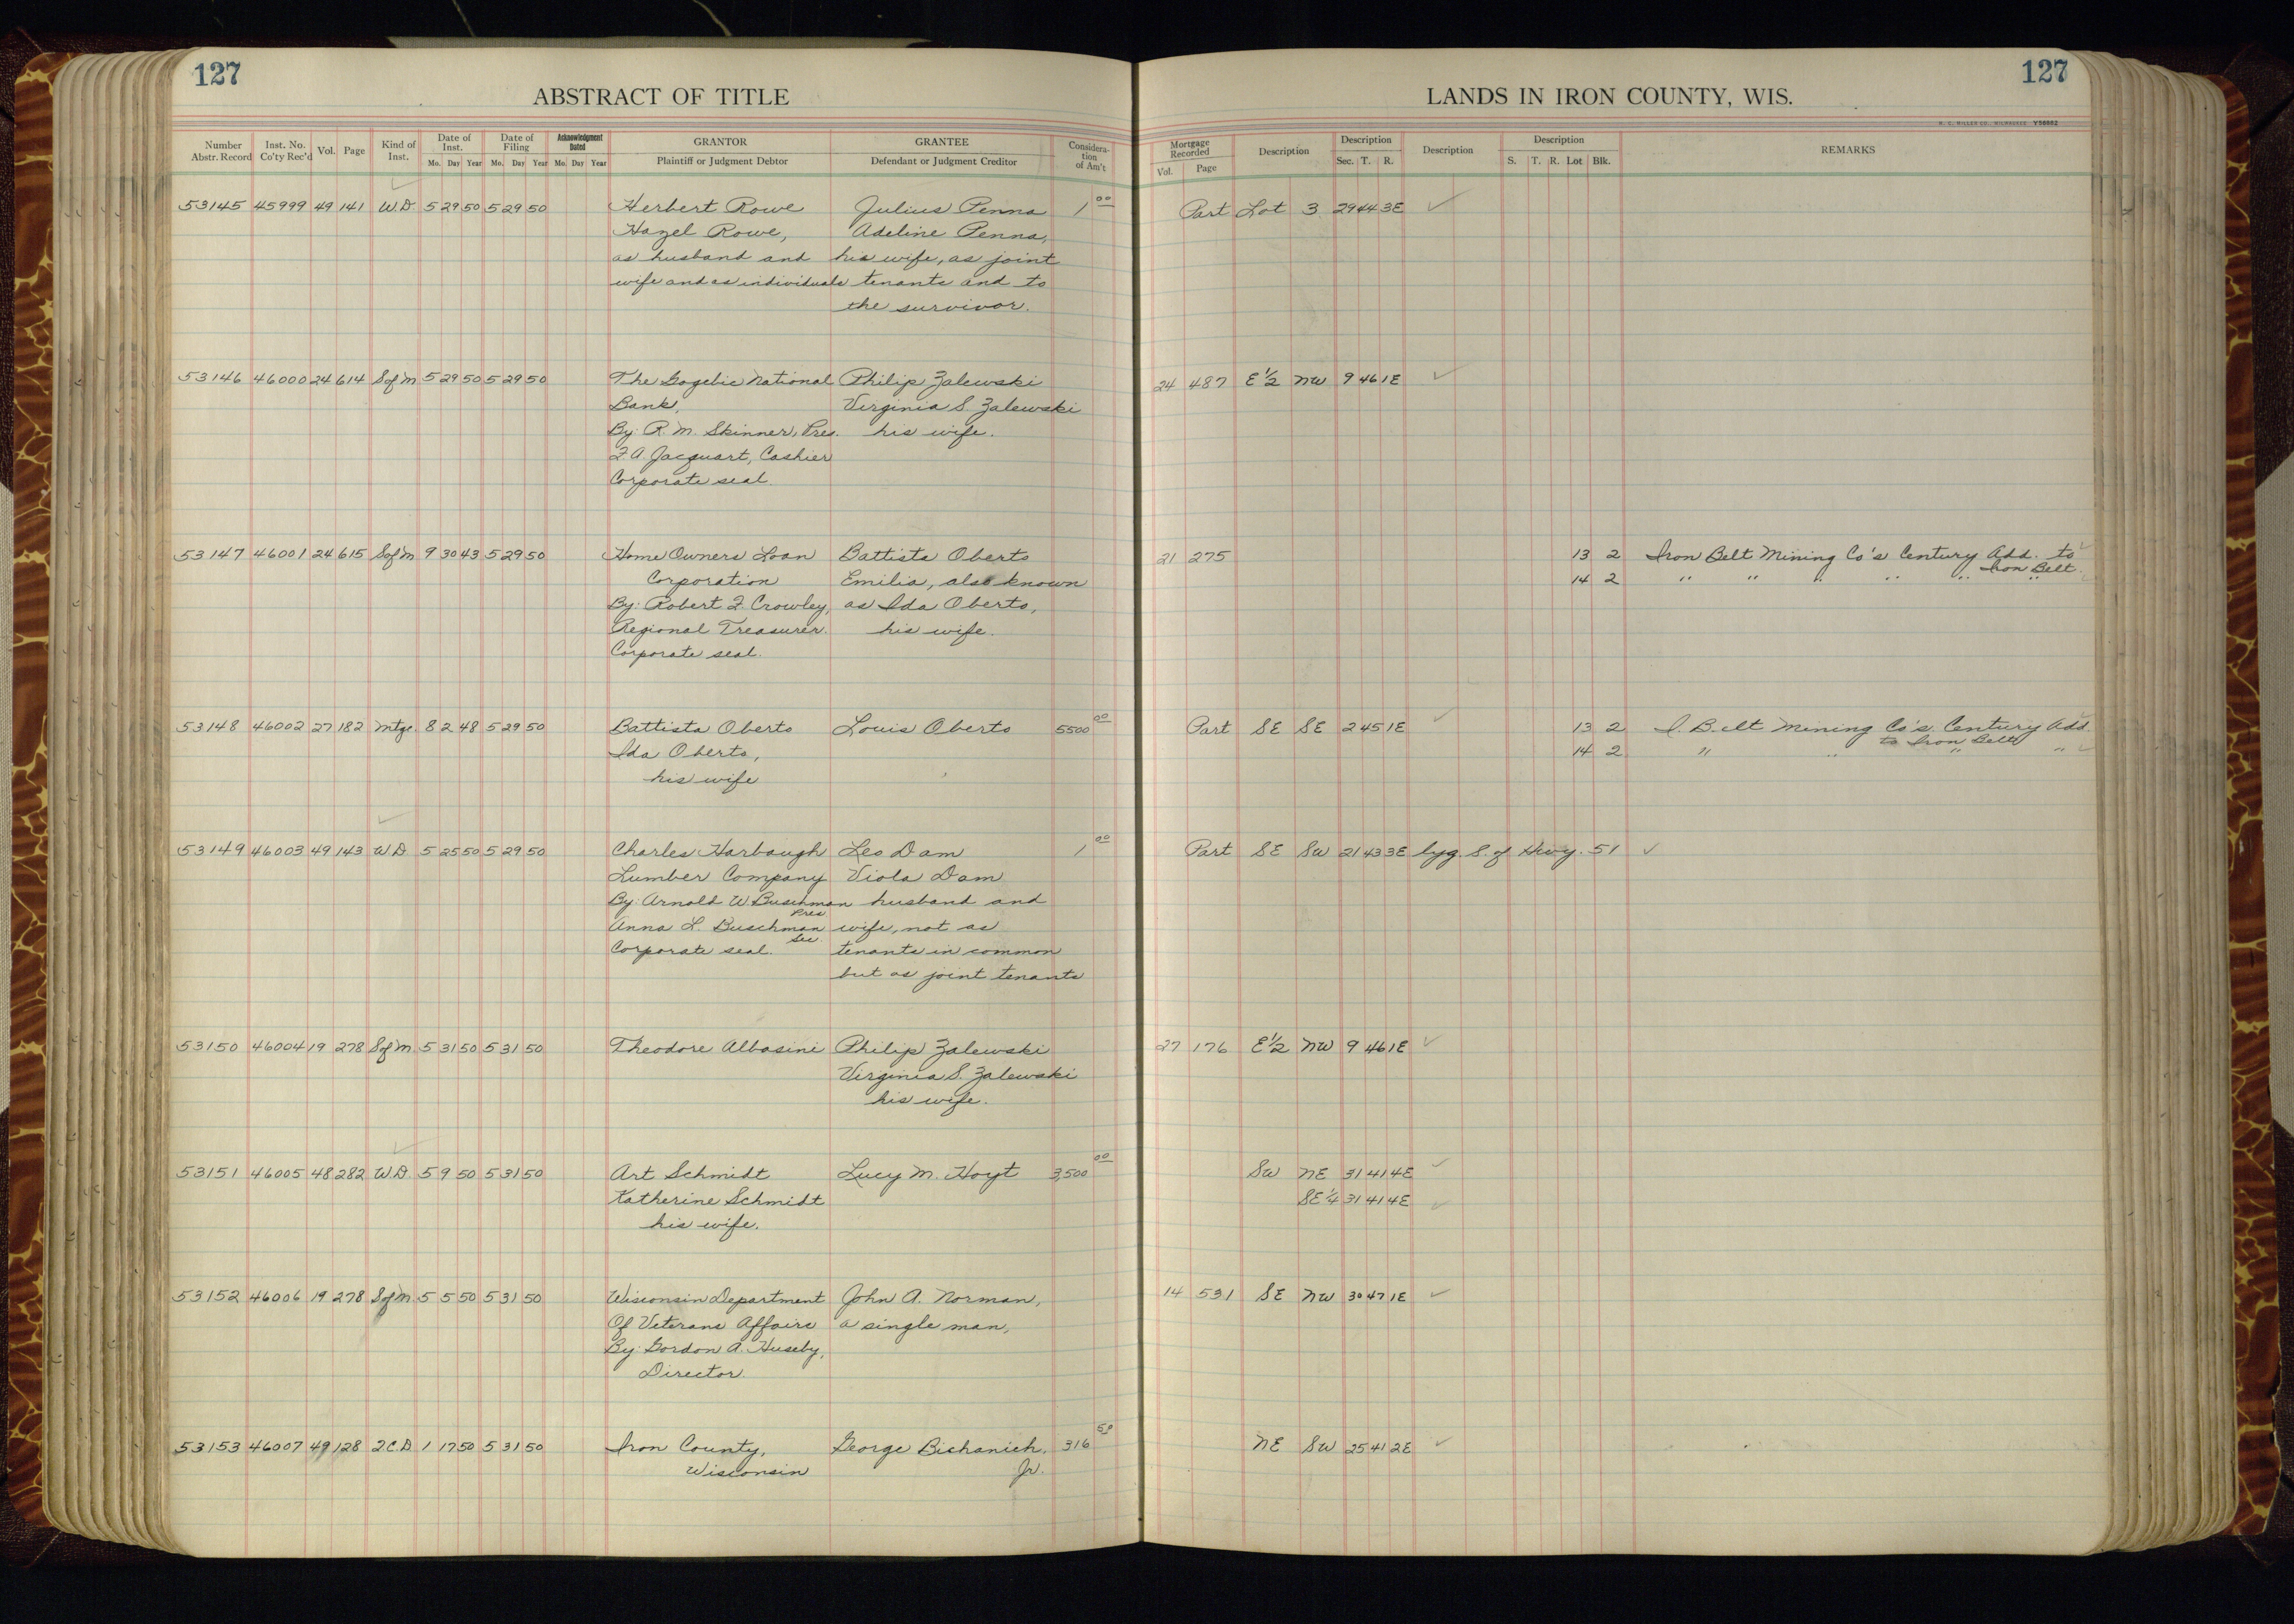 127
127
ABSTRACT OF TITLE
LANDS IN IRON COUNTY, WIS.
H. C. MILLER CO., MILWAUKEE V56862
Number Abstr. Record Inst. No. Co'ty Rec'd Vol. Page Kind of Inst. Date of Inst. Mo. Day Year Date of Filing Mo. Day Year Acknowledgment Dated Mo. Day Year GRANTOR Plaintiff or Judgment Debtor GRANTEE Defendant or Judgment Creditor Consideration of Am't Mortgage Recorded Vol. Page Description Description Sec. T. R. Description Description S. T. R. Lot Blk. REMARKS
53145 45999 49 141 W.D. 5 29 50 5 29 50 Herbert Rowe Julius Penna 1 00 Part Lot 3 29 44 3E
Hazel Rowe, Adeline Penna,
as husband and his wife, as joint
wife and as individuals tenants and to
the survivor.
53146 46000 24 614 S of M 5 29 50 5 29 50 The Gogebic National Philip Zalewski 24 487 E 1/2 NW 9 46 1E
Bank, Virginia S. Zalewski
By: R. M. Skinner, Pres. his wife.
F. A. Jacquart, Cashier
Corporate seal
53147 46001 24 615 S of M 9 30 43 5 29 50 Home Owners Loan Battista Oberto 21 275 13 2 Iron Belt Mining Co's Century Add. to
Corporation Emilia, also known 14 2 " " " " " Iron Belt "
By: Robert F. Crowley, as Ida Oberto,
Regional Treasurer. his wife.
Corporate seal.
53148 46002 27 182 Mtge. 8 2 48 5 29 50 Battista Oberto Louis Oberto 5500 00 Part SE SE 2 45 1E 13 2 I. Belt Mining Co's. Century Add.
to Iron Belt
Ida Oberto, 14 2 " " " "
his wife
53149 46003 49 143 W.D. 5 25 50 5 29 50 Charles Harbaugh Leo Dam 1 00 Part SE SW 21 43 3E lyg. S. of Hwy. 51
Lumber Company Viola Dam
By: Arnold W Buschman husband and
Pres
Anna L. Buschman wife, not as
Sec.
Corporate seal. tenants in common
but as joint tenants
53150 46004 19 278 S of M 5 31 50 5 31 50 Theodore Albasini Philip Zalewski 27 176 E 1/2 NW 9 46 1E
Virginia S. Zalewski
his wife.
53151 46005 48 282 W.D. 5 9 50 5 31 50 Art Schmidt Lucy M. Hoyt 3,500 00 SW NE 31 41 4E
Katherine Schmidt SE 1/4 31 41 4E
his wife.
53152 46006 19 278 S of M. 5 5 50 5 31 50 Wisconsin Department John A. Norman, 14 531 SE NW 30 47 1E
Of Veterans Affairs a single man,
By: Gordon A. Huseby,
Director.
53153 46007 49 128 2.C.D. 1 17 50 5 31 50 Iron County, George Bichanich, 316 50 NE SW 25 41 2E
Wisconsin Jr.